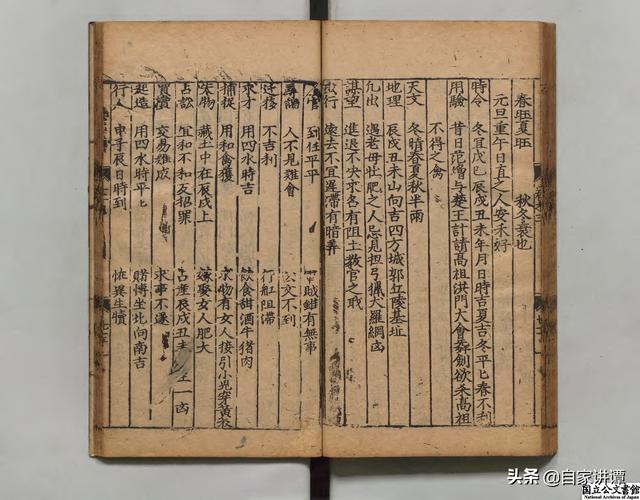 春旺夏旺 秋冬衰也
元旦重午日直之人安禾好
時令 冬宜戊巳辰戌丑未年月日時吉夏吉冬平匕春不利
用驗 昔日范增与楚王計請高祖洪門大會舞劍欲杀高祖
不得之禽
天文 冬晴春夏秋半雨
地理 辰戌丑未山向吉四方城郭丘陵基址
凢出 遇老母壯肥之人忌見担弓獵犬羅網凶
謀望 進退不決求名有阻土教官之职
遠去不宜遲滯有暗算
到任平平 賊雖有無事
人不見難會 公文不到
迁移 不吉利 行舡阻滯
求才 用四水時吉 飲食甜酒牛猪肉
捕捉 用和禽獲 求物有女人接引小児穿黄衣
失物 藏土中在辰戌上 嫁娶女人肥大
占訟 宜和不和反招罪 占産辰戌丑未
買賣 交易难成 求事不遂
起造 用四水時平匕 賭博坐北向南吉
行人 申子辰日時到 怪異生犢
头条 @自家讲谭
国立公文書館
National Archives of Japan